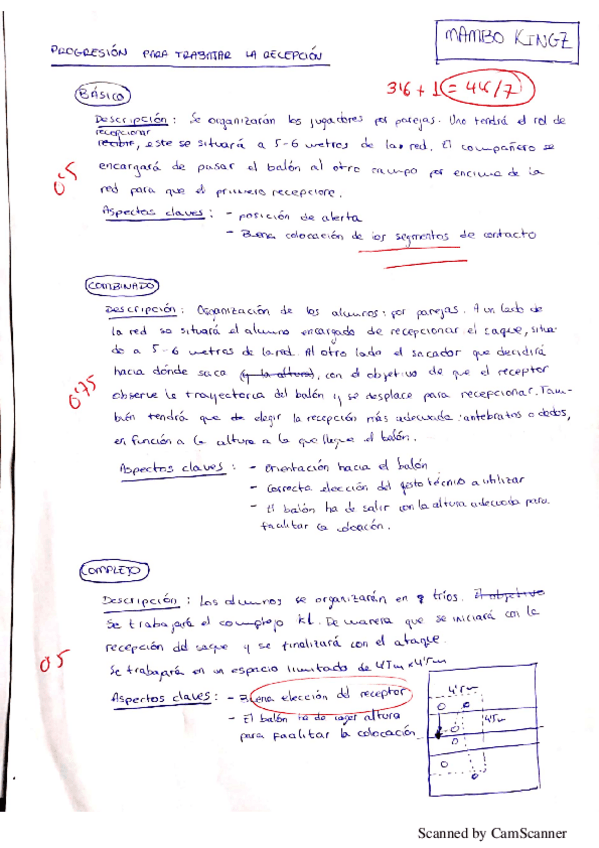 MAMBO KINGZ
PROGRESIÓN PARA TRABAJAR LA RECEPCIÓN
3'6 + 1 = 4'6/7
BÁSICO
Descripción: Se organizarán los jugadores por parejas. Uno tendrá el rol de
recepcionar
recibir, este se situará a 5-6 metros de la red. El compañero se
0'5
encargará de pasar el balón al otro campo por encima de la
red para que el primero recepcione.
Aspectos claves: - posición de alerta
- Buena colocación de los segmentos de contacto
COMBINADO
Descripción: Organización de los alumnos: por parejas. A un lado de
la red se situará el alumno encargado de recepcionar el saque, situa-
do a 5-6 metros de la red. Al otro lado el sacador que decidirá
hacia dónde saca (y la altura), con el objetivo de que el receptor
0'75
observe la trayectoria del balón y se desplace para recepcionar. Tam-
bién tendrá que elegir la recepción más adecuada: antebrazos o dedos,
en función a la altura a la que llegue el balón.
Aspectos claves: - Orientación hacia el balón
- Correcta elección del gesto técnico a utilizar
- El balón ha de salir con la altura adecuada para
facilitar la colocación.
COMPLEJO
Descripción: Los alumnos se organizarán en tríos. El objetivo
Se trabajará el complejo K1. De manera que se iniciará con la
recepción del saque y se finalizará con el ataque.
05
Se trabajará en un espacio limitado de 4'5m x 4'5m
Aspectos claves: - Buena elección del receptor
- El balón ha de coger altura
para facilitar la colocación
4'5m
4'5m
Scanned by CamScanner